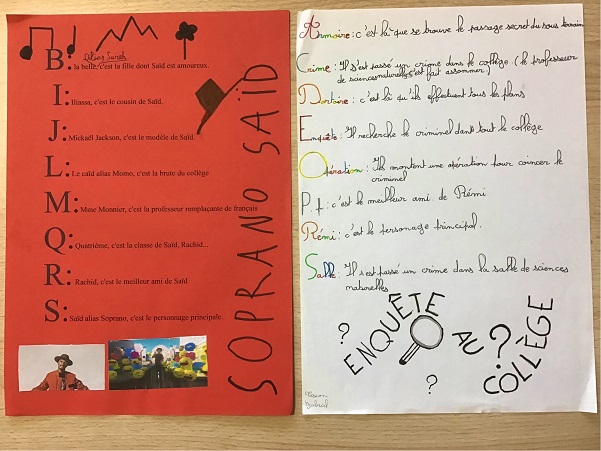 Dilias Sarah
B: la belle, c'est la fille dont Saïd est amoureux.
I: Iliassa, c'est le cousin de Saïd.
J: Mickaël Jackson, c'est le modèle de Saïd.
L: Le caïd alias Momo, c'est la brute du collège
M: Mme Monnier, c'est la professeur remplaçante de français
Q: Quatrième, c'est la classe de Saïd, Rachid...
R: Rachid, c'est le meilleur ami de Saïd
S: Saïd alias Soprano, c'est le personnage principale.
SOPRANO SAÏD
Armoire: c'est là que se trouve le passage secret du sous terrain
Crime: Il s'est passé un crime dans le collège (le professeur
de sciences naturelles s'est fait assommer)
Dortoire: c'est là qu'ils effectuent tous les plans
Enquête: Il recherche le criminel dans tout le collège
Opération: Ils montent une opération pour coincer le
criminel
P.f: c'est le meilleur ami de Rémi
Rémi: c'est le personage principal.
Salle: Il s'est passé un crime dans la salle de sciences
naturelles
ENQUÊTE
AU
COLLÈGE
? ? ?